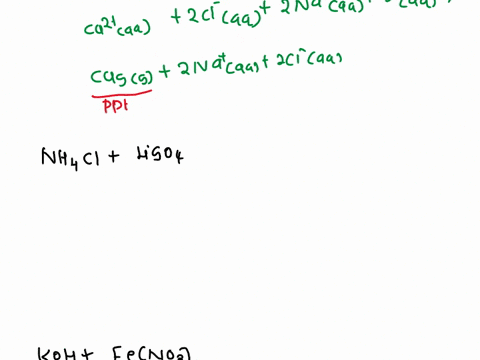 Ca²⁺(aq) + 2Cl⁻(aq) + 2Na (aq) +
CaS(s) + 2Na⁺(aq) + 2Cl⁻(aq)
ppt
NH₄Cl + LiSO₄
KOH + Fe(NO₃)